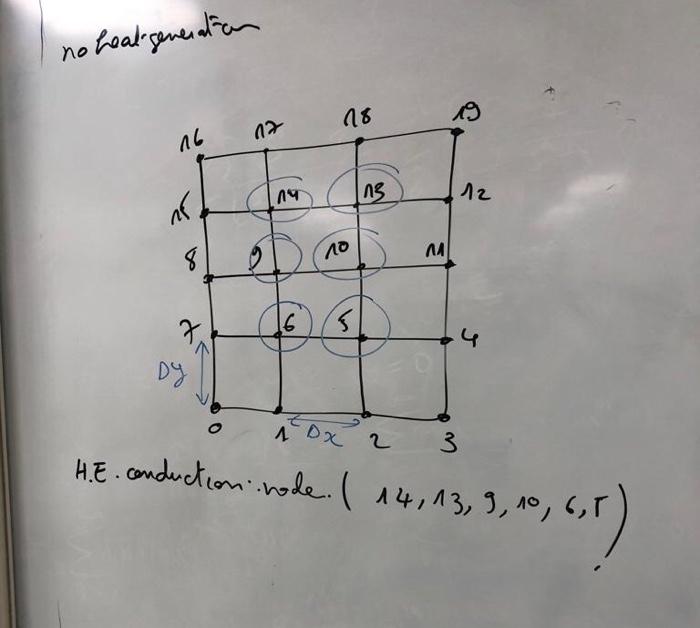 no heat generation
16 17 18 19
15 14 13 12
8 9 10 11
7 6 5 4
Dy
0 1 Dx 2 3
H.E. conduction: node. ( 14, 13, 9, 10, 6, 5 )